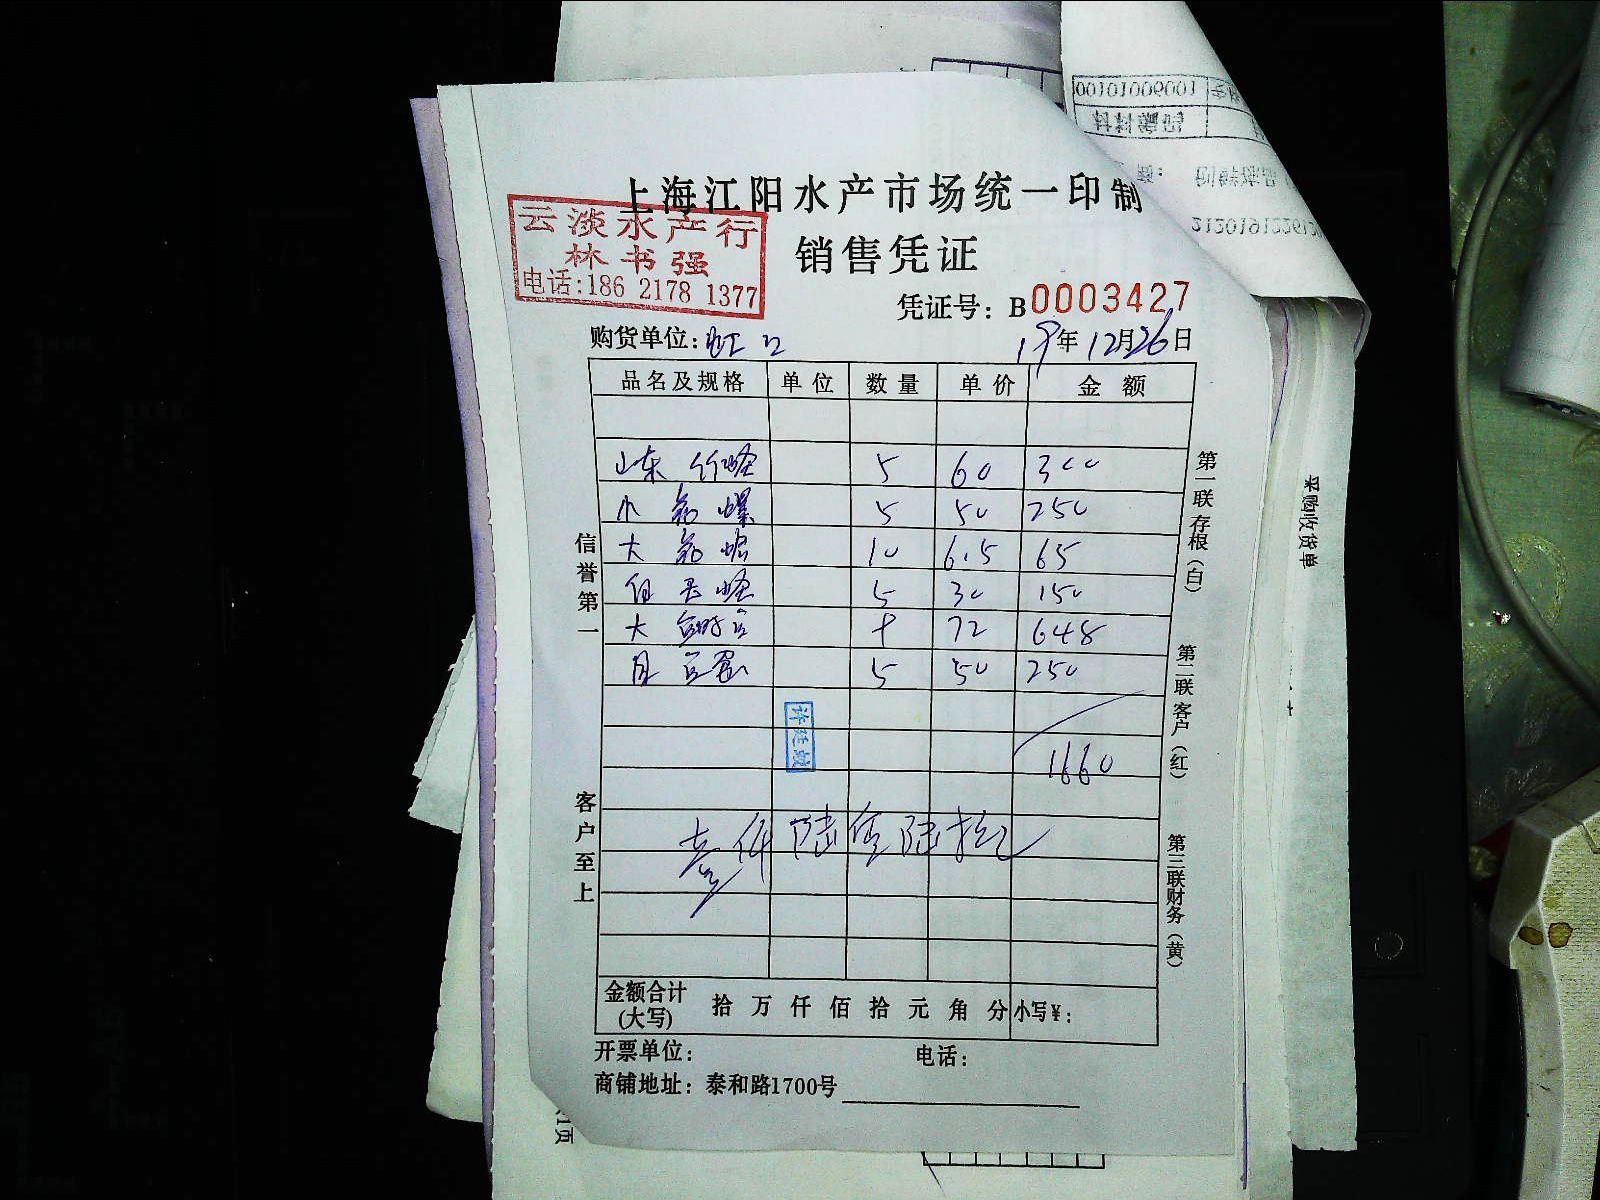 00101009001
印编料
上海江阳水产市场统一印制
云淡水产行
林书强
电话:186 2178 1377
销售凭证
凭证号: B0003427
购货单位: 虹口
19年12月26日
品名及规格 单位 数量 单价 金额
山东 竹蛏 5 60 300
小 螺 5 50 250
大 10 6.5 65
蛏 5 30 150
大 72 648
5 50 250
1660
许廷敏
壹仟陆佰陆拾元
金额合计(大写) 拾万仟佰拾元角分 小写¥:
开票单位: 电话:
商铺地址: 泰和路1700号
信誉第一
客户至上
第一联存根(白)
第二联客户(红)
第三联财务(黄)
采购收货单